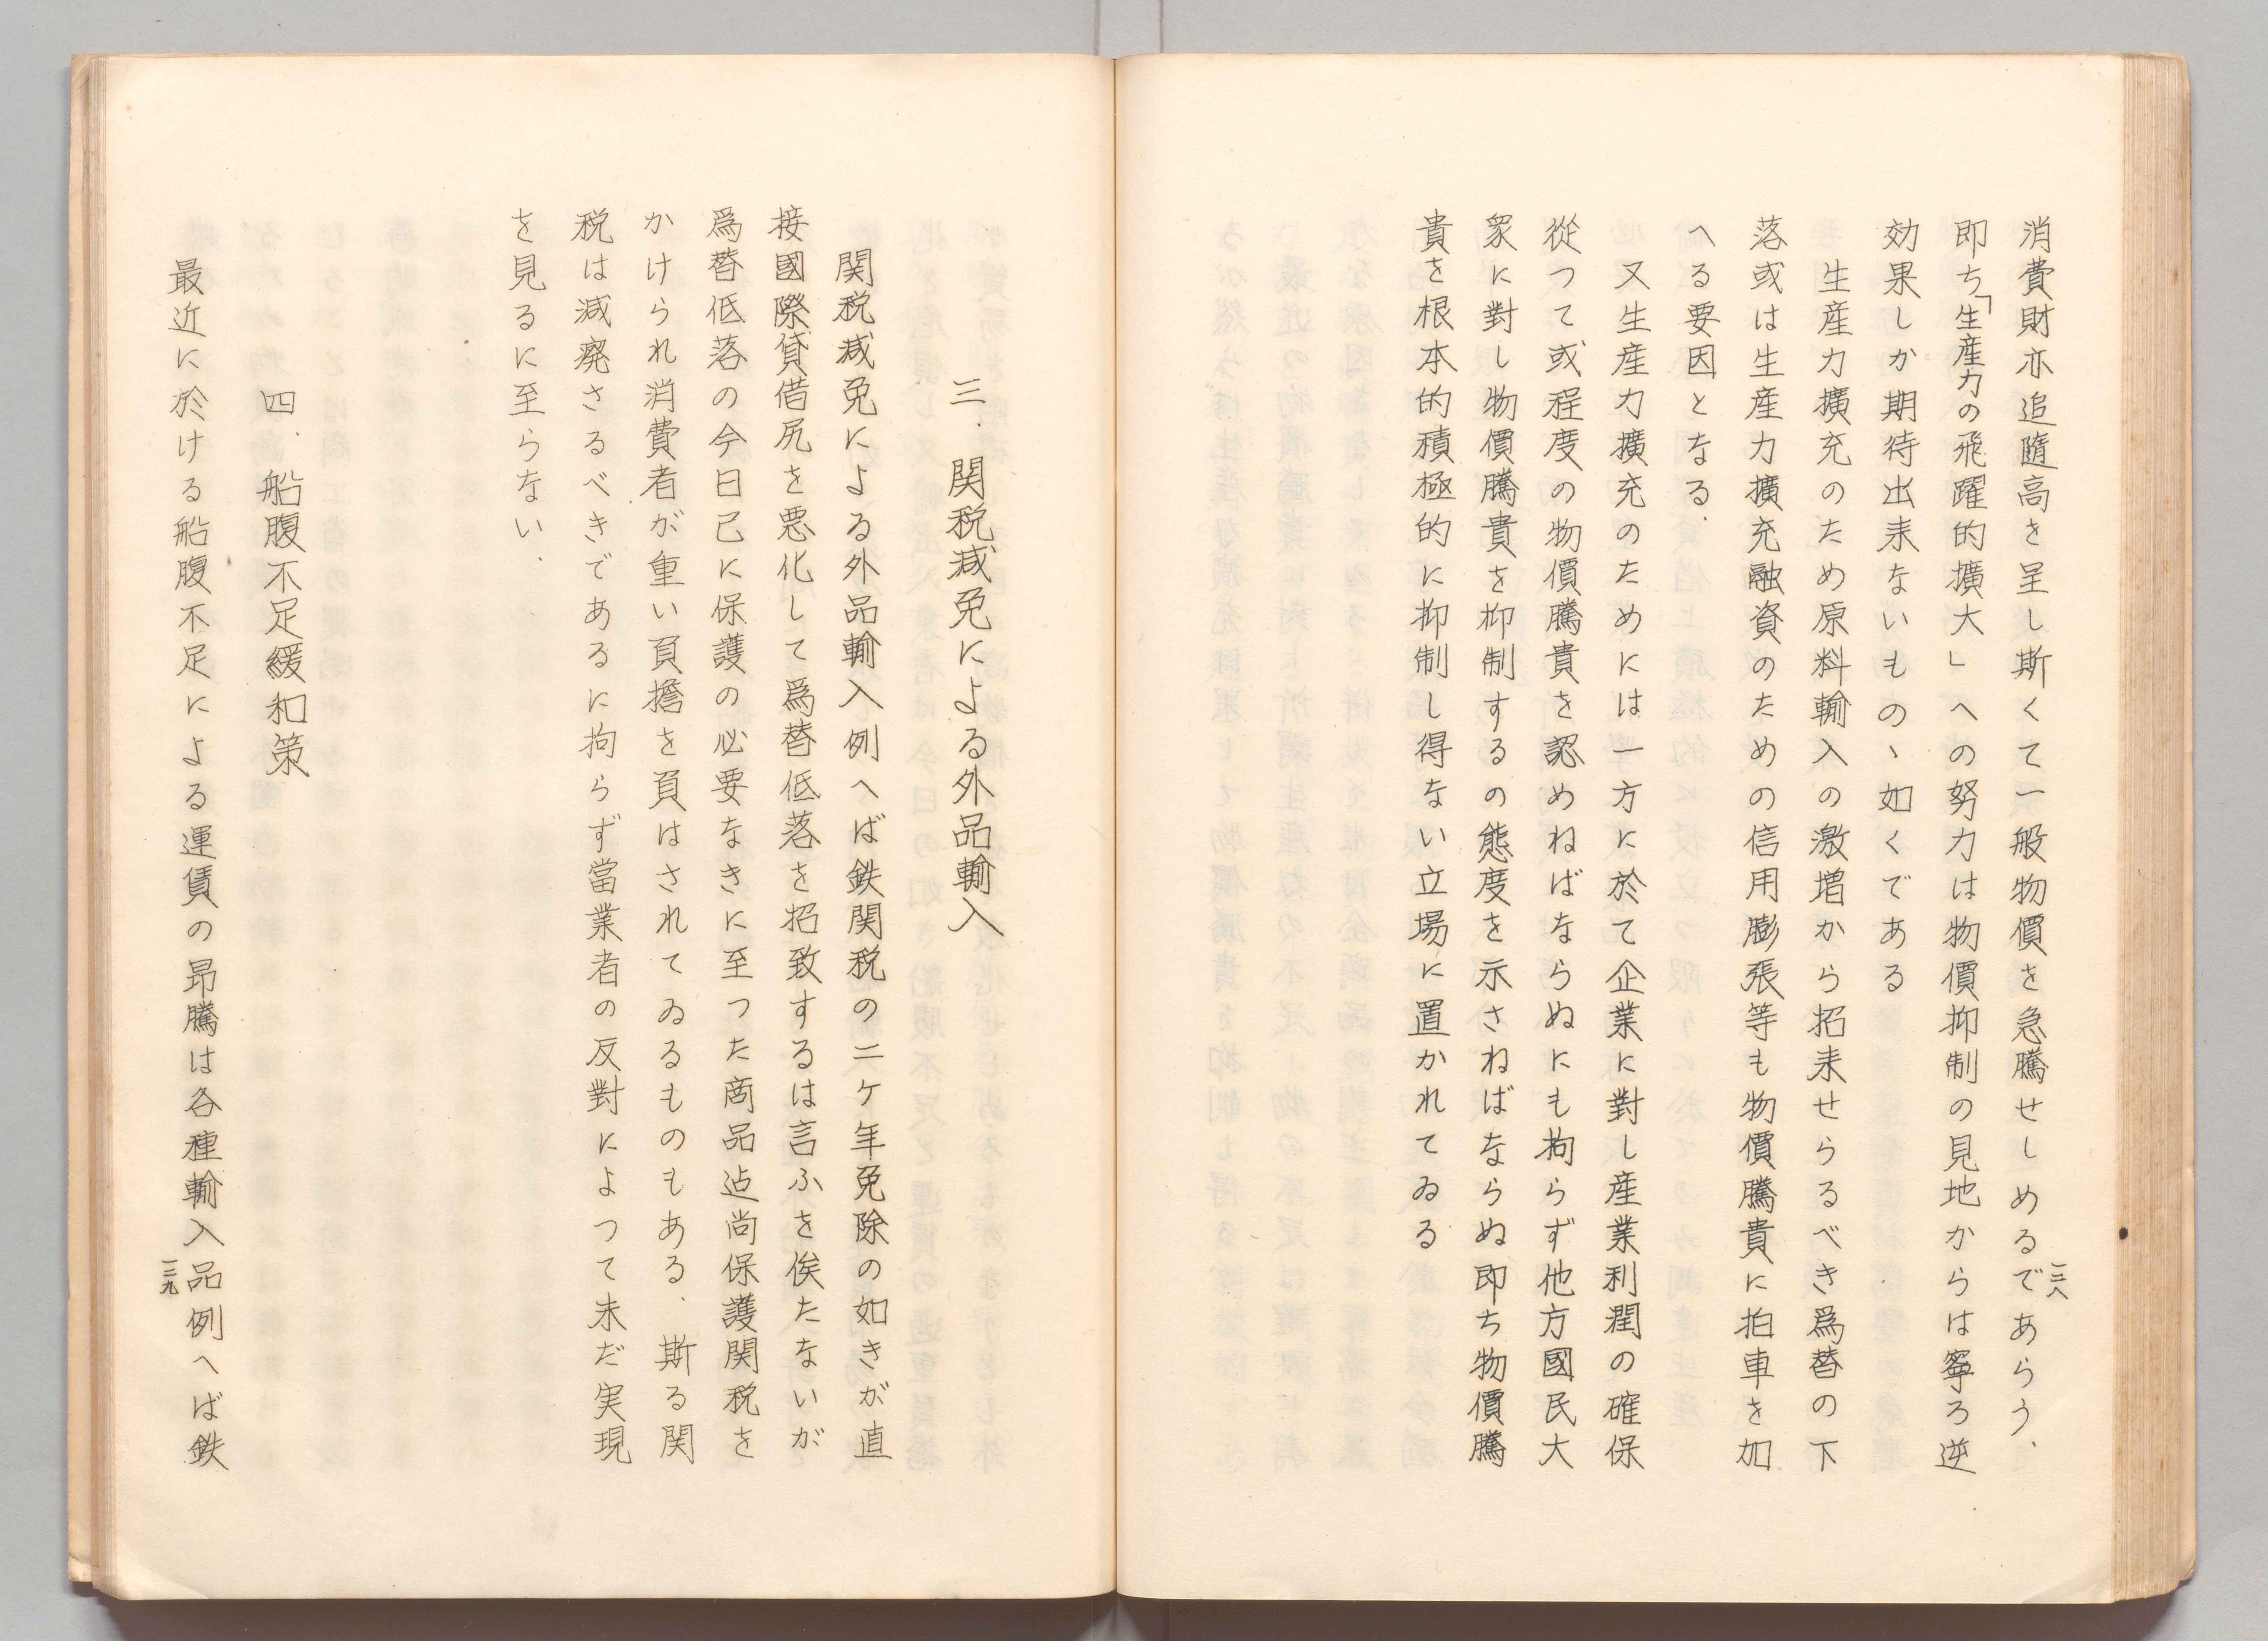 消費財亦追隨高を呈し斯くて一般物價を急騰せしめるであらう、
即ち「生産力の飛躍的擴大」への努力は物價抑制の見地からは寧ろ逆
効果しか期待出来ないものゝ如くである
生産力擴充のため原料輸入の激増から招来せらるべき爲替の下
落或は生産力擴充融資のための信用膨張等も物價騰貴に拍車を加
へる要因となる.
又生産力擴充のためには一方に於て企業に對し産業利潤の確保
從つて或程度の物價騰貴を認めねばならぬにも拘らず他方國民大
衆に對し物價騰貴を抑制するの態度を示さねばならぬ即ち物價騰
貴を根本的積極的に抑制し得ない立場に置かれてゐる
一三八
三. 関税減免による外品輸入
関税減免による外品輸入例へば鉄関税の二ケ年免除の如きが直
接國際貸借尻を悪化して爲替低落を招致するは言ふを俟たないが
爲替低落の今日已に保護の必要なきに至つた商品迠尚保護関税を
かけられ消費者が重い負擔を負はされてゐるものもある. 斯る関
税は減廃さるべきであるに拘らず當業者の反對によつて未だ実現
を見るに至らない.
四. 船腹不足緩和策
最近に於ける船腹不足による運賃の昻騰は各種輸入品例へば鉄
一三九